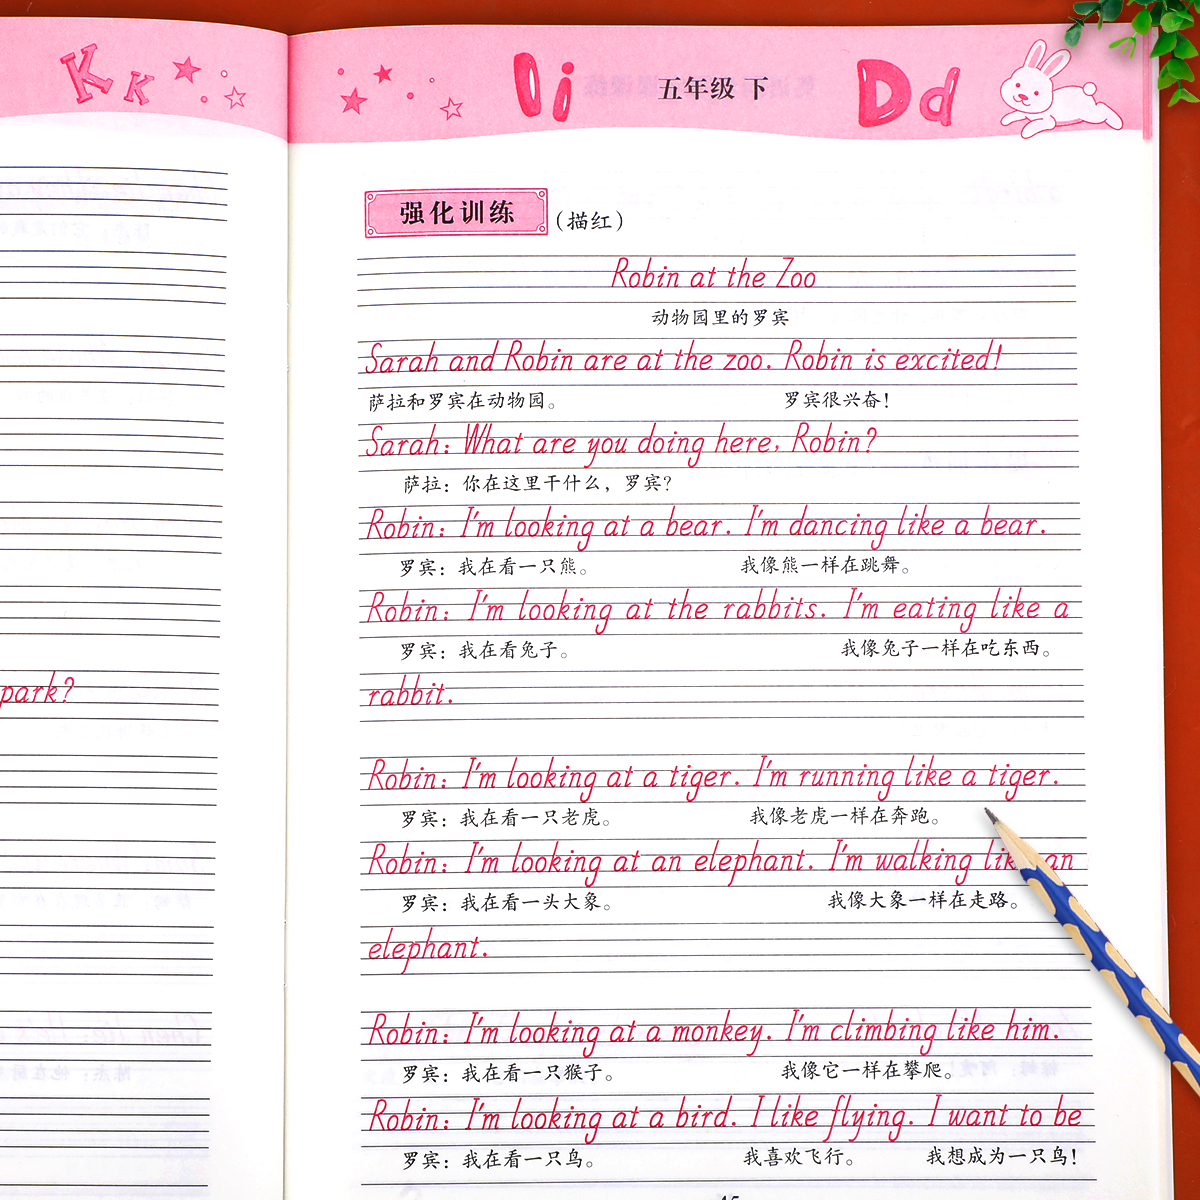 K k
I i
五年级 下
D d
强化训练 (描红)
Robin at the Zoo
动物园里的罗宾
Sarah and Robin are at the zoo. Robin is excited!
萨拉和罗宾在动物园。 罗宾很兴奋!
Sarah: What are you doing here, Robin?
萨拉: 你在这里干什么, 罗宾?
Robin: I'm looking at a bear. I'm dancing like a bear.
罗宾: 我在看一只熊。 我像熊一样在跳舞。
Robin: I'm looking at the rabbits. I'm eating like a
罗宾: 我在看兔子。 我像兔子一样在吃东西。
park?
rabbit.
Robin: I'm looking at a tiger. I'm running like a tiger.
罗宾: 我在看一只老虎。 我像老虎一样在奔跑。
Robin: I'm looking at an elephant. I'm walking like an
罗宾: 我在看一头大象。 我像大象一样在走路。
elephant.
Robin: I'm looking at a monkey. I'm climbing like him.
罗宾: 我在看一只猴子。 我像它一样在攀爬。
Robin: I'm looking at a bird. I like flying. I want to be
罗宾: 我在看一只鸟。 我喜欢飞行。 我想成为一只鸟!